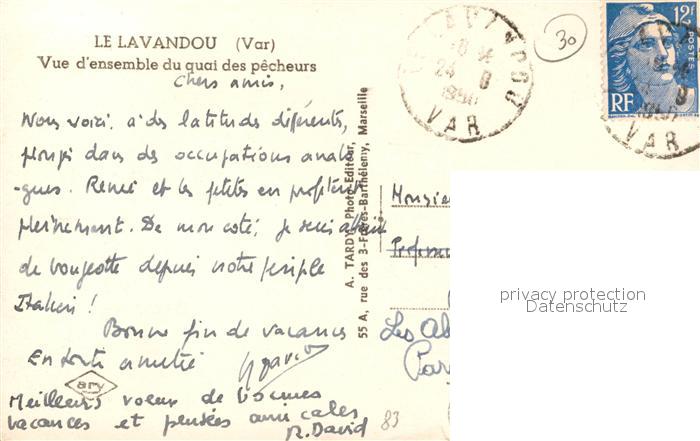 LE LAVANDOU (Var)
Vue d'ensemble du quai des pêcheurs
Chers amis,
Nous voici, à des latitudes différentes,
dans des occupations analo
-gues. Renée et les petites en profitent
pleinement. De mon coté, je suis
de bougeotte depuis notre périple
Italien !
Bonne fin de vacances
En toute amitié
Meilleurs voeux de bonnes
vacances et pensées amicales
R. David
A. TARDY, Photo-Editeur,
55 A, rue des 3-Frères-Barthélemy, Marseille
LE LAVANDOU
24 8
1950
VAR
30
12F
POSTES
RF
VAR
Monsieur
Les
Par
83
privacy protection
Datenschutz